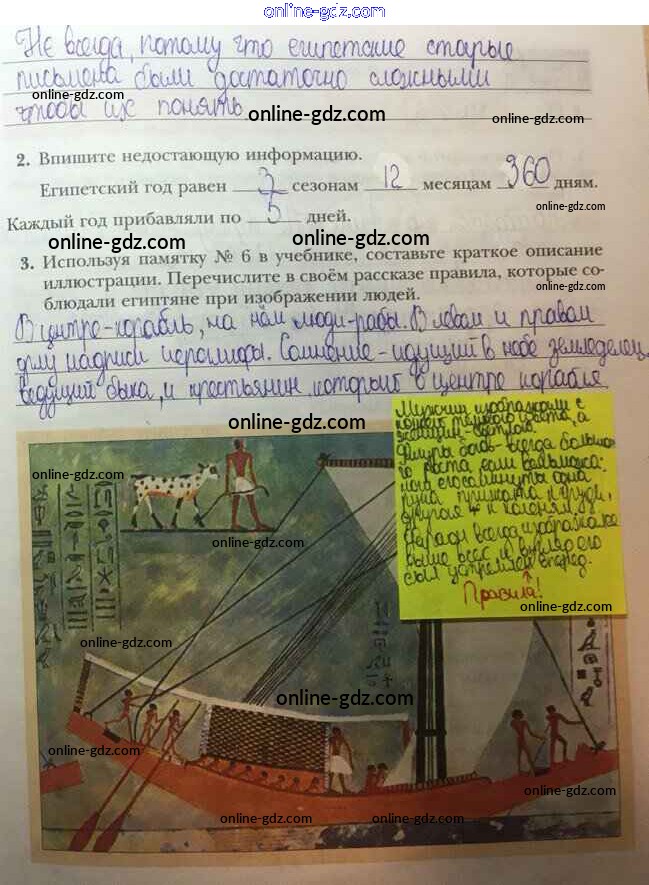 online-gdz.com
Не всегда, потому что египетские старые
письмена были достаточно сложными
online-gdz.com
чтобы их понять
online-gdz.com
online-gdz.com
2. Впишите недостающую информацию.
Египетский год равен 3 сезонам 12 месяцам 360 дням.
online-gdz.com
Каждый год прибавляли по 5 дней.
online-gdz.com
online-gdz.com
3. Используя памятку № 6 в учебнике, составьте краткое описание
иллюстрации. Перечислите в своём рассказе правила, которые со-
online-gdz.com
блюдали египтяне при изображении людей.
В центре-корабль, на нём люди-рабы. В левом и правом
углу надписи иероглифы. Сомнение-идущий в небе земледелец,
ведущий быка, и крестьянин который в центре корабля
online-gdz.com
Мужчин изображали с
кожей тёмного цвета, а
женщин-светлой
Фигуры богов-всегда большо-
го роста, если вельможа-
рука прижата к груди,
другая
Фараон всегда изображался
выше всех и
был устремлён вперёд.
Правила!
online-gdz.com
online-gdz.com
online-gdz.com
online-gdz.com
online-gdz.com
online-gdz.com
online-gdz.com
online-gdz.com
online-gdz.com
online-gdz.com